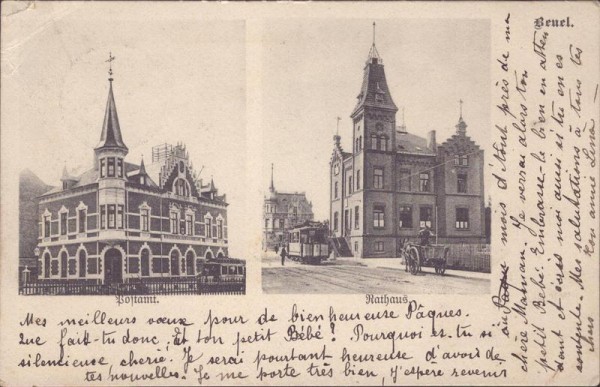 Beuel.
Postamt.
Rathaus
Mes meilleurs vœux pour de bien heureuse Pâques.
Que fait-tu donc. Et ton petit Bébé? Pourquoi es-tu si
silencieuse cherie. Je serai pourtant heureuse d'avoir de
tes nouvelles. Je me porte très bien, j'espère revenir
au mois d'Août près de ma
chère Maman. Je verai alors ton
petit Bébé. Embrasse-le bien en atten
dant et écris moi aussi si tu en es
contente. Mes salutations à tous tes
chers Ton amie Lina